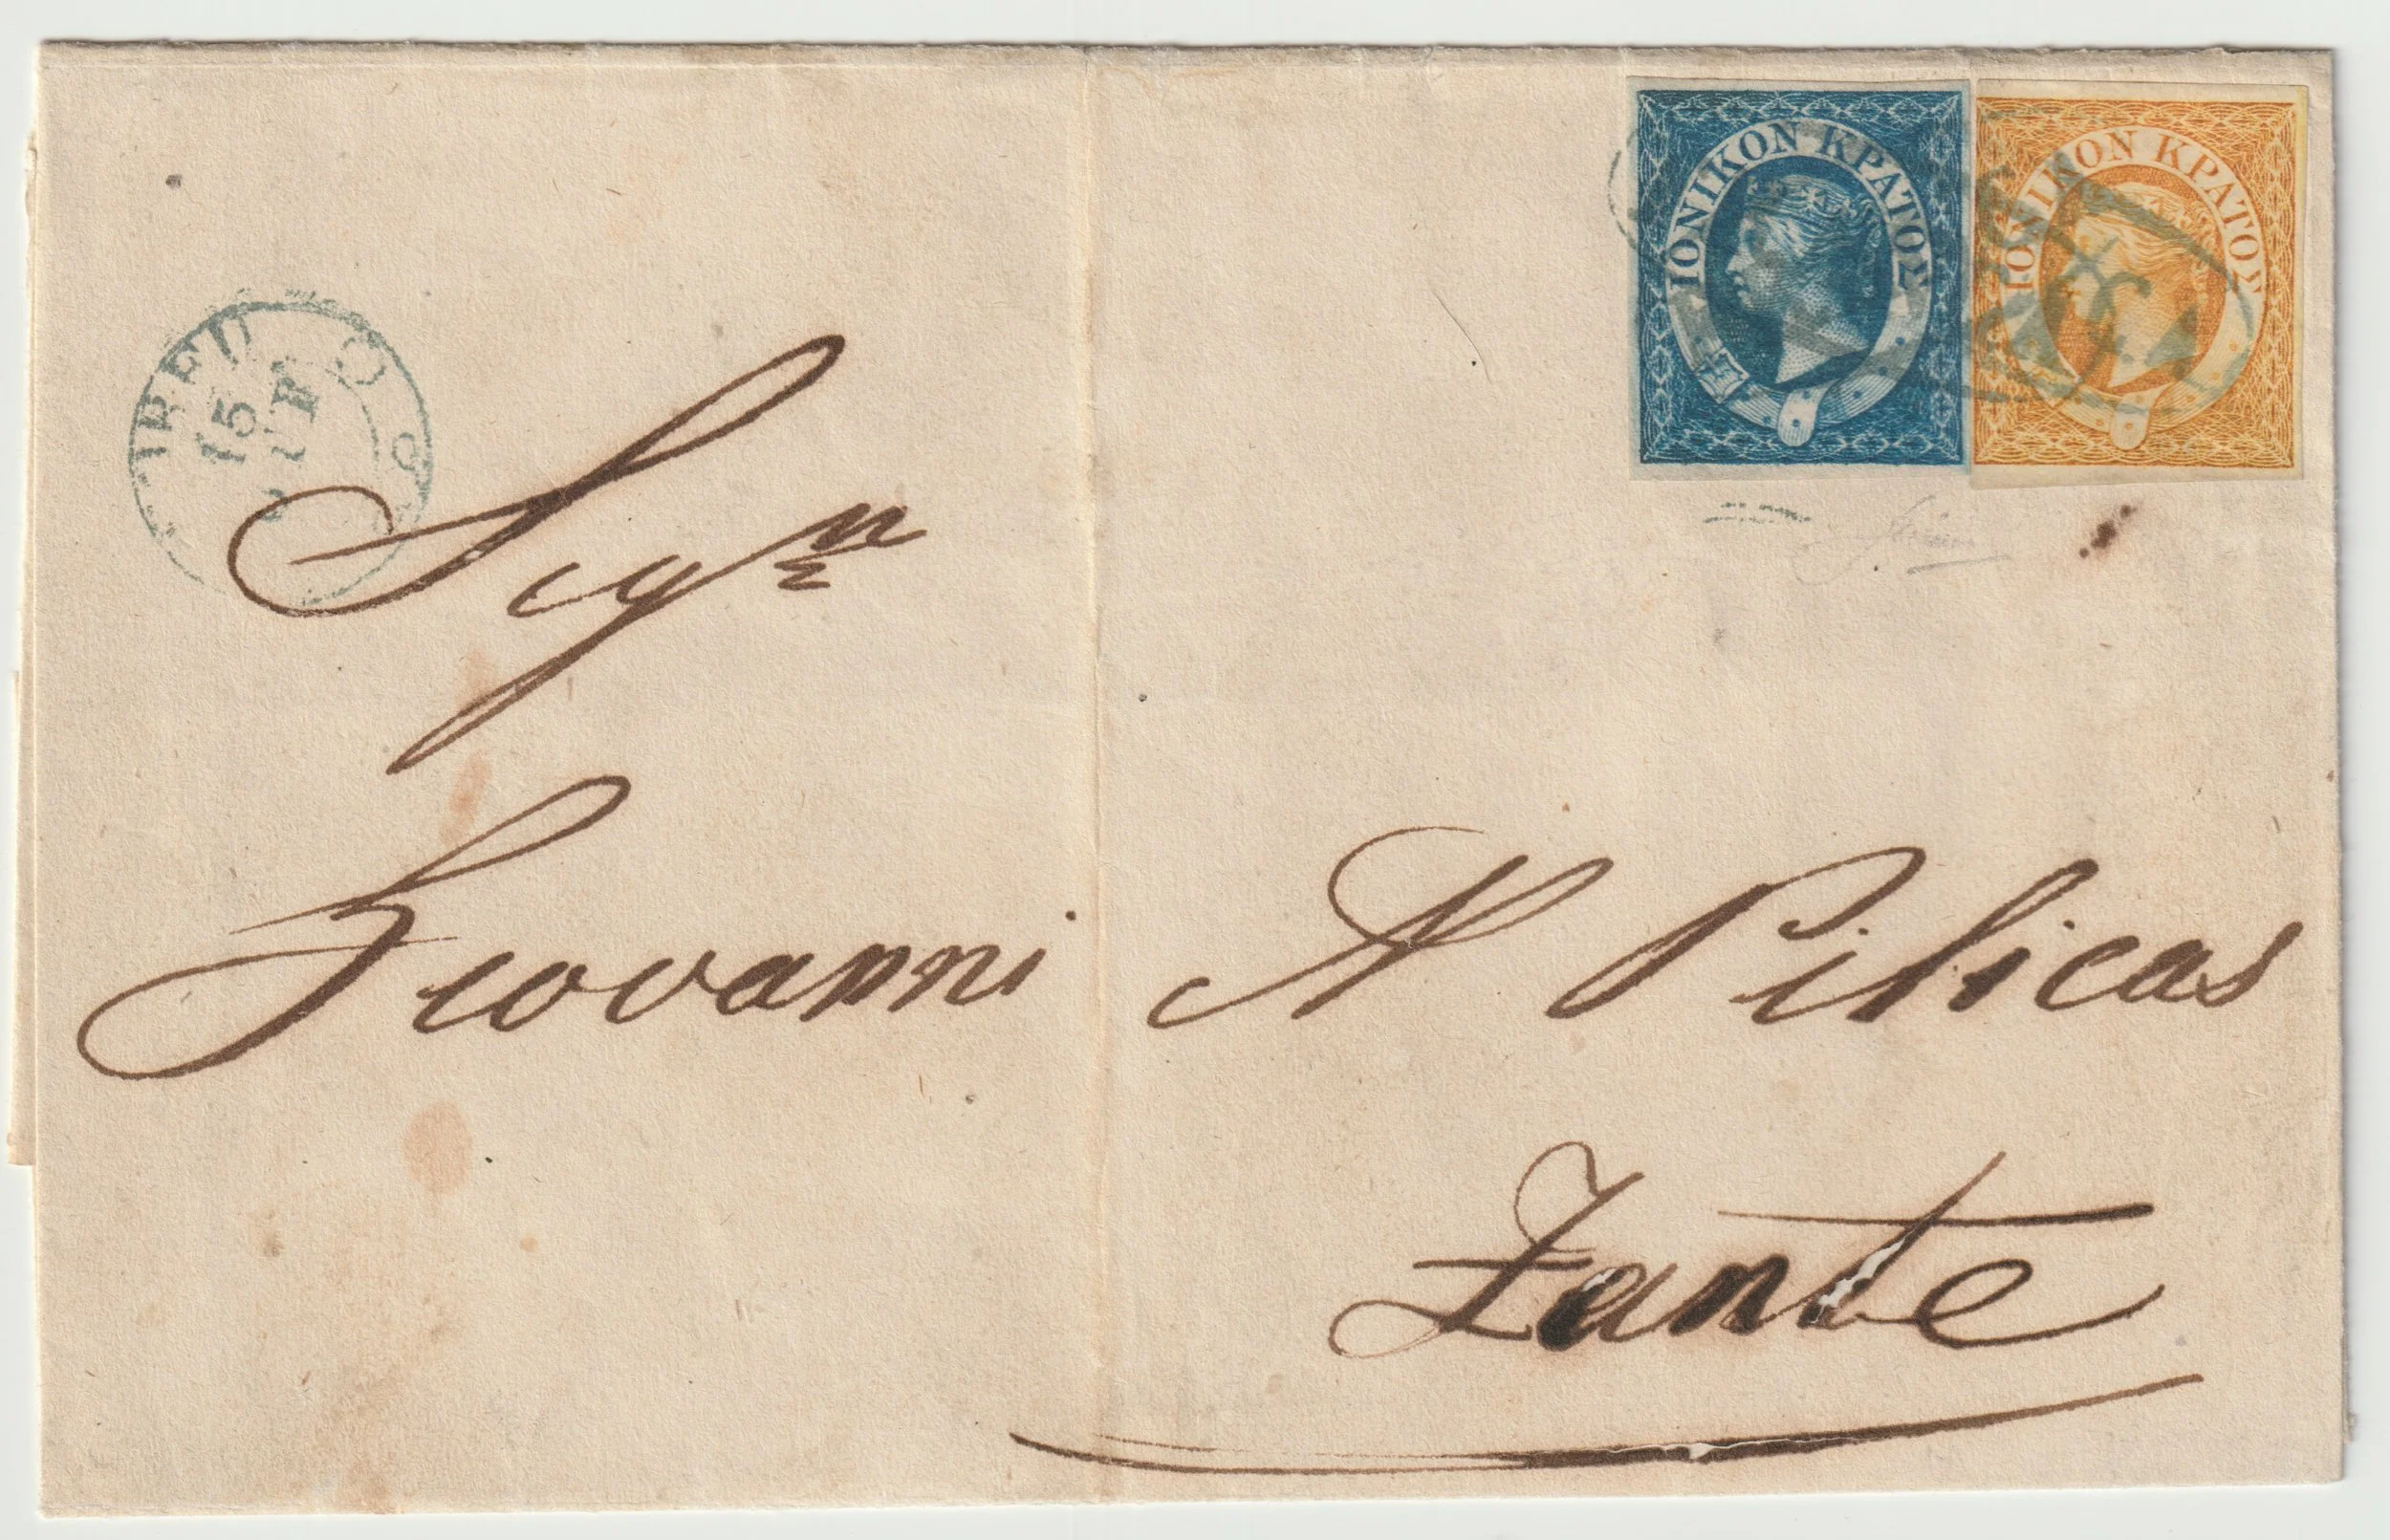 ΙΟΝΙΚΟΝ ΚΡΑΤΟΣ
ΙΟΝΙΚΟΝ ΚΡΑΤΟΣ
15
Sigⁿ
Giovanni N Pilicas
Zante